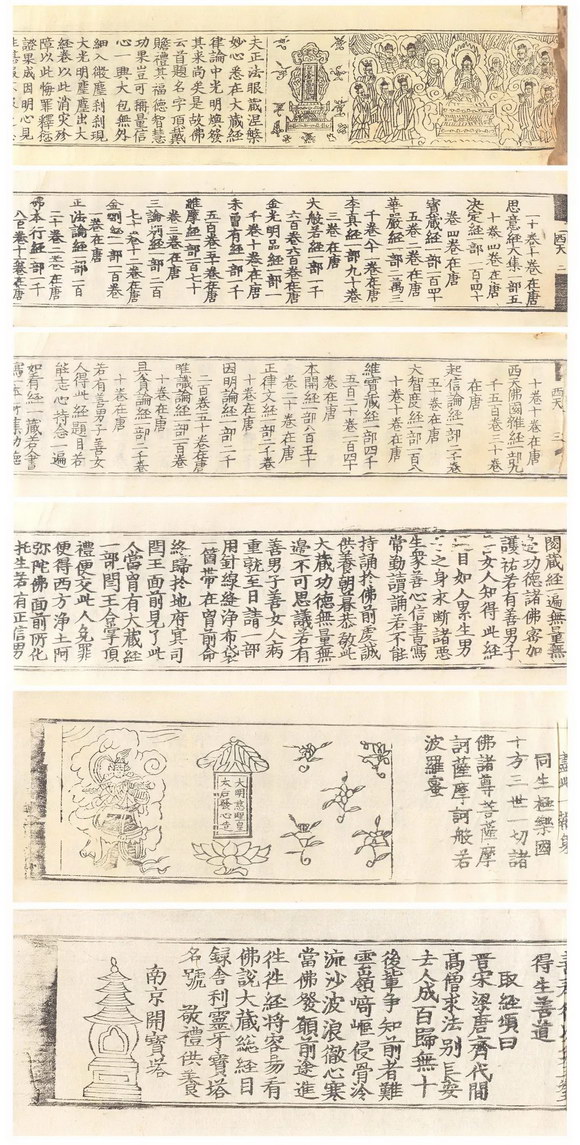 夫正法眼藏涅槃
妙心卷在大藏經
律論中光明煥發
其來尚矣是故佛
云首題名字頂戴
贍禮其福德智慧
功果豈可稱量信
心一興大包無外
細入微塵剎剎現
大光明塵塵出大
經卷以此消灾殄
障以此悔罪釋愆
證果成因明心見
西天 二
一十卷十卷在唐
思意經大集一部五
十卷四卷在唐
決定經一部一百四十
卷四卷在唐
寶藏經一部一百四十
五卷二卷在唐
華嚴經一部一萬三
千卷八十一卷在唐
李真經一部九十卷
三卷在唐
大般若經一部一千
六百卷六百卷在唐
金光明品經一部一
千卷十卷在唐
未曾有經一部一千
五百卷五十卷在唐
維摩經一部一百七十
卷三卷在唐
三論別經一部二百
七十卷十二卷在唐
金剛經一部一百卷
一卷在唐
正法論經一部一百
二十卷二十卷在唐
佛本行經一部一千
八百卷十卷在唐
西天 三
十卷十卷在唐
西天佛國雜經一部九
千五百卷三十卷
在唐
起信論經一部二千卷
五十卷在唐
大智度經一部一百八
十卷十卷在唐
維寶藏經一部四千
五百二十卷一百四十
卷在唐
本開經一部八百五十
卷二十卷在唐
正律文經一部二千卷
十卷在唐
因明論經一部二千
二百卷五十卷在唐
唯識論經一部一百卷
十卷在唐
具舍論經一部二千卷
十卷在唐
若有善男子善女
人得此經題目若
能志心持念一遍
如看經一藏若人書
閱藏經一遍無量無
邊功德諸佛密加
護祐若有善男子
善女人知得此經
目如人累生男
女之身來斷諸惡
生衆善心信書寫
常勤讀誦若不能
持誦於佛前虔誠
供養朝暮恭敬此
大藏功德無量無
邊不可思議若有
善男子善女人病
重就至日請一部
用針線縫淨布袋
一箇帶在胷前命
終歸於地府冥司
閻王面前見了此
人當胷有大藏經
一部閻王合掌頂
禮便交此人免罪
便得西方淨土阿
弥陀佛面前所化
托生若有正信男
盡此一報身
同生極樂國
十方三世一切諸
佛諸尊菩薩摩
訶薩摩訶般若
波羅蜜
大明慈聖皇
太后發心造
得生善道
取經頌曰
晋宋梁唐齊代間
高僧求法別長安
去人成百歸無十
後輩爭知前者難
雪嶺崎嶇侵骨冷
流沙波浪徹心寒
當佛發願前途進
徃徃經将容易看
佛說大藏総經目
録舍利靈牙寳塔
名號 敬禮供養
南京開寳塔